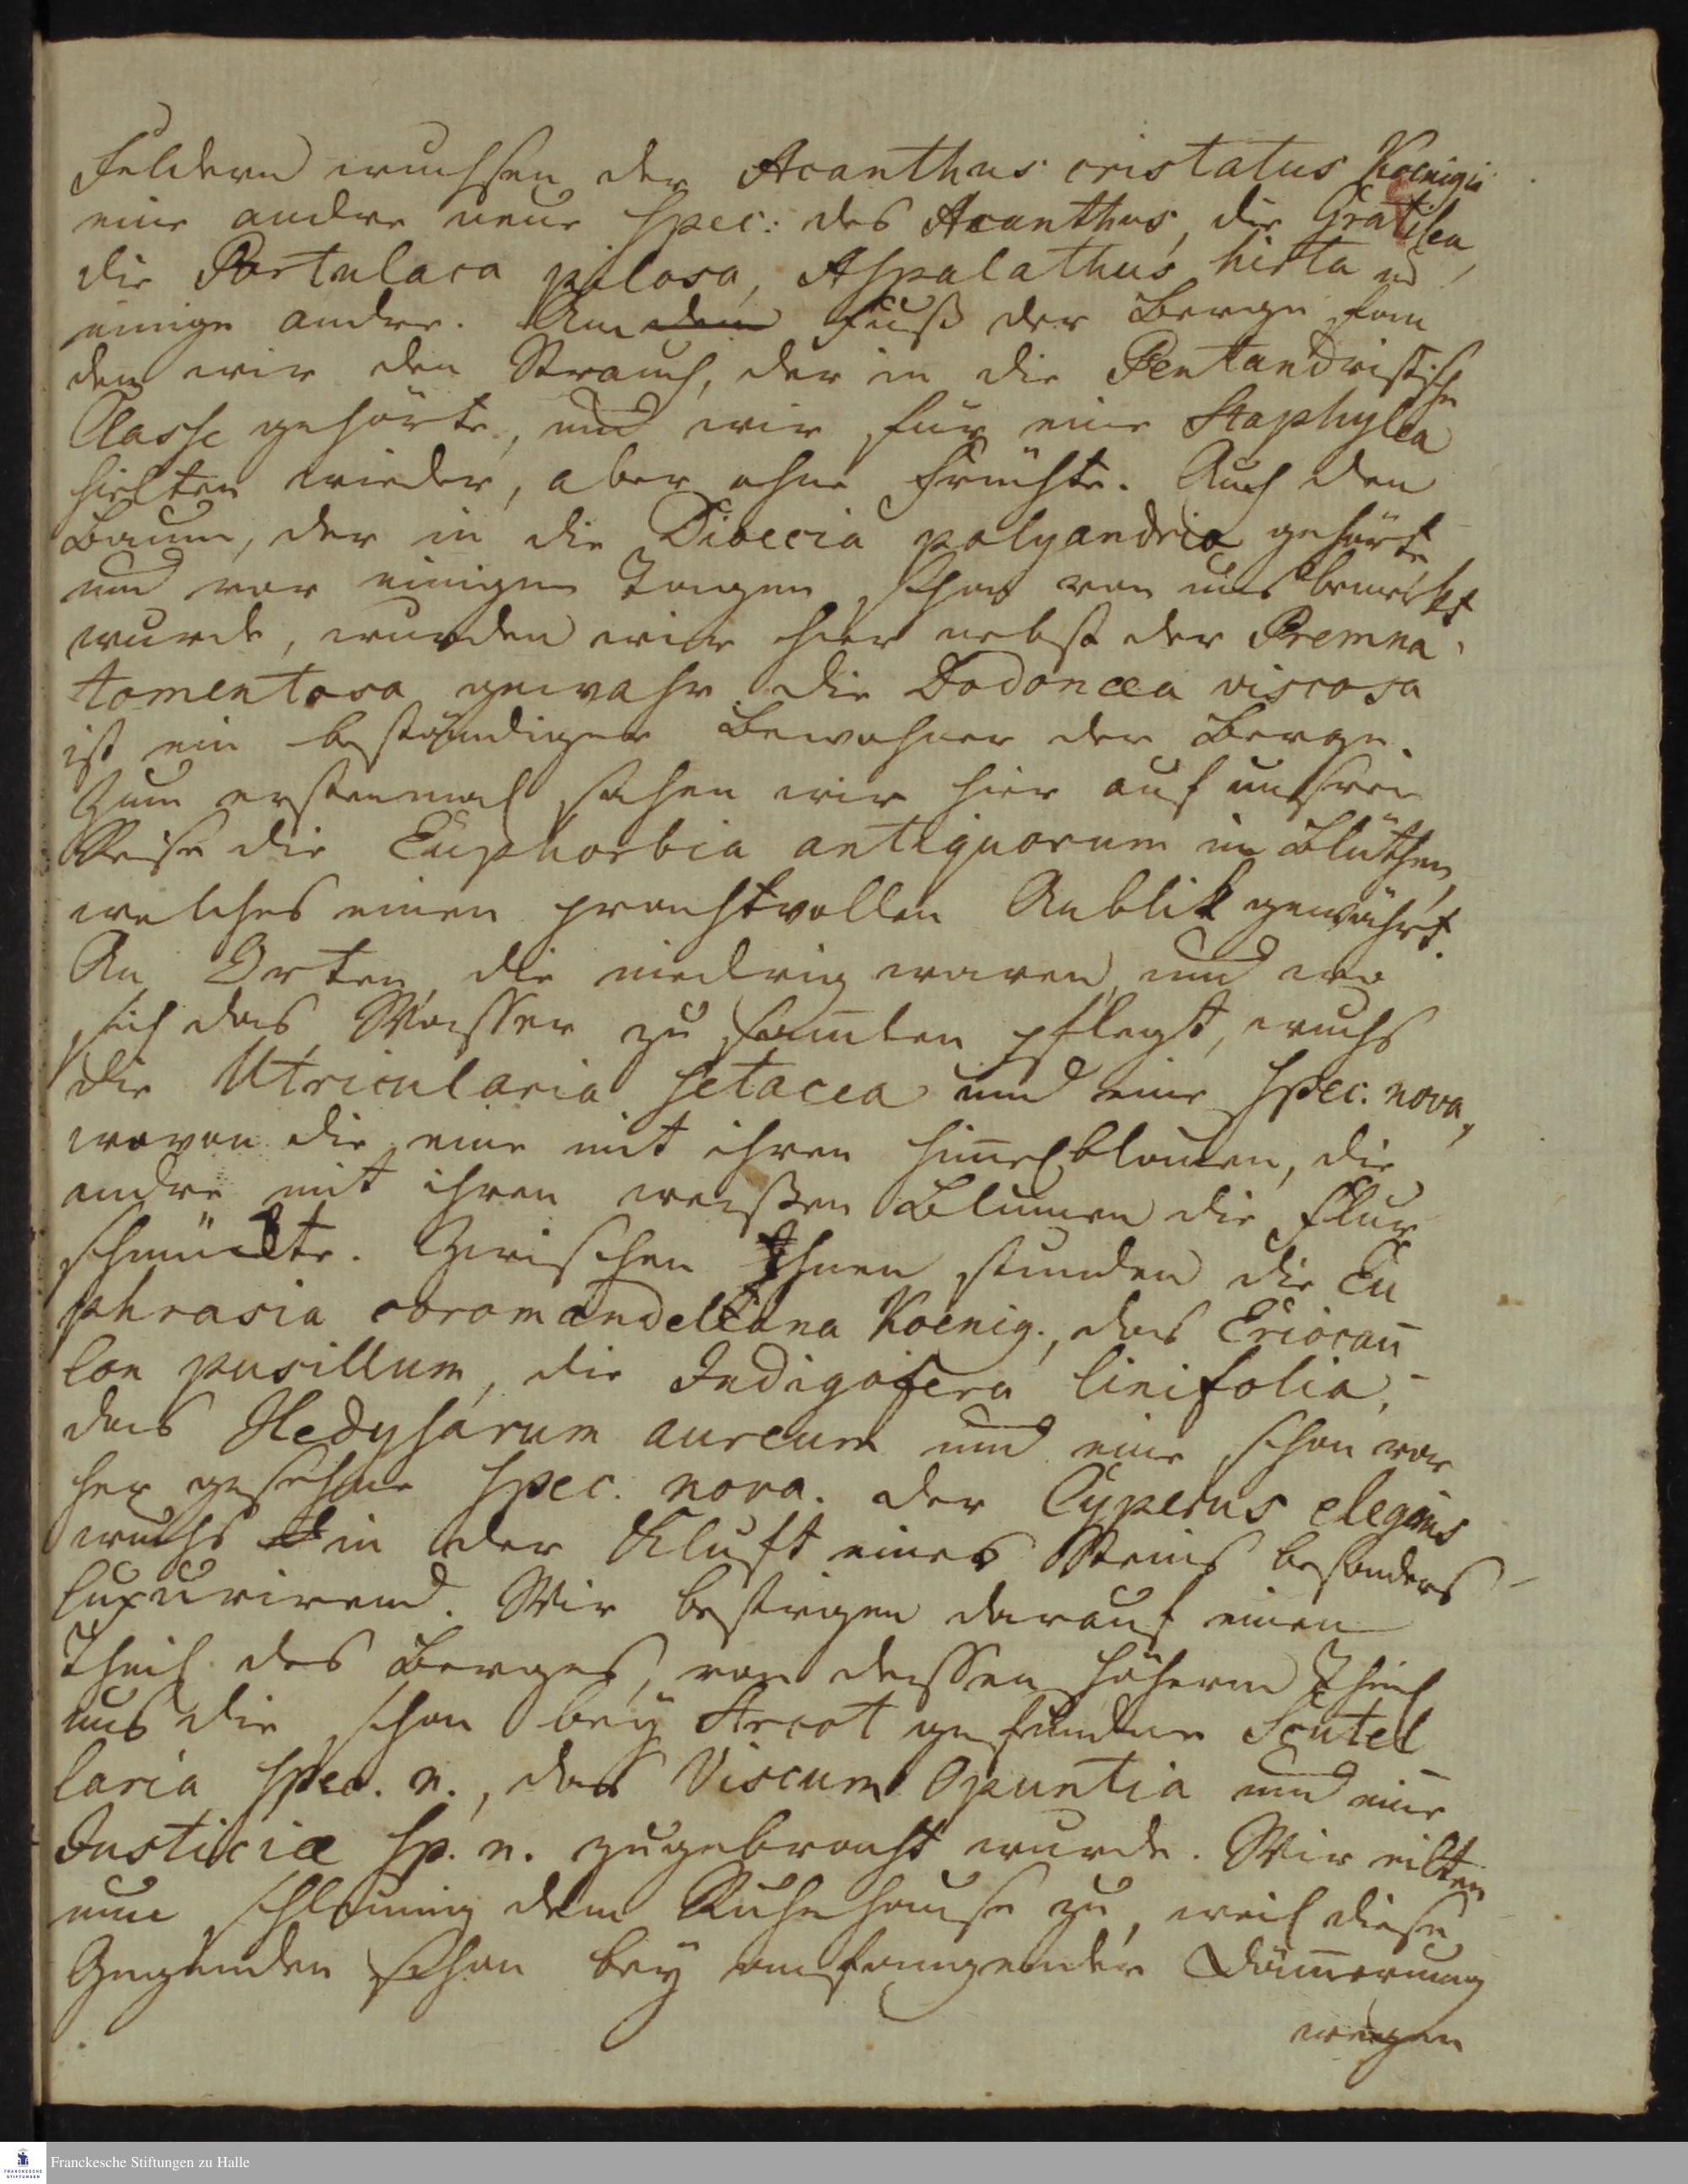 Feldern wuchsen der Acanthus cristatus Koenigii
eine andre neue spec: des Acanthus, die Gratilea,
die Portulaca pilosa, Aspalathus hirta ud
einige andre. Am dem Fuß der Berge fan
den wir den Strauch, der in die Pentandristische
Classe gehörte, und wir für eine Staphylea
hielten wieder, aber ohne Früchte. Auch den
Baum, der in die Dioecia polyandria gehörte
und vor einigen Tagen schon von uns bemerkt
wurde, wurden wir hier nebst der Premna
tomentosa gewahr. Die Dodonaea viscosa
ist ein beständiger Bewohner der Berge.
Zum erstenmal sahen wir hier auf unsrer
Reise die Euphorbia antiquorum in Blüthen,
welches einen prachtvollen Anblik gewährt.
An Orten, die niedrig waren, und wo
sich das Wasser zu sam̅len pflegt, wuchs
die Utricularia setacea und eine spec. nova,
wovon die eine mit ihren him̅elblauen, die
andre mit ihren weißen Blumen die Flur
schmückte. Zwischen Ihnen stunden die Eu
phrasia coromandeliana Koenig., das Eriocau
lon pusillum, die Indigofera linifolia,
das Hedysarum aureum und eine schon vor
her gesehene spec. nova. Der Cyperus elegans
wuchs in der Kluft eines Steins besonders
luxurirend. Wir bestiegen darauf einen
Theil des Berges, von dessen höherm Theil
uns die schon bey Arcot gefundene Scutel
laria spec. n., das Viscum Opuntia und eine
Justicia sp. n. zugebracht wurde. Wir eilten
nun schleunig dem Ruhehause zu, weil diese
Gegenden schon bey anfangender Däm̅erung
wegen
Franckesche Stiftungen zu Halle
FRANCKESCHE
STIFTUNGEN